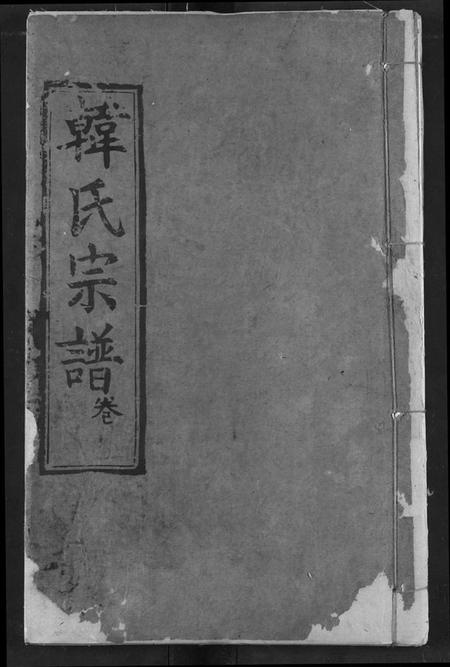 韓氏宗譜卷